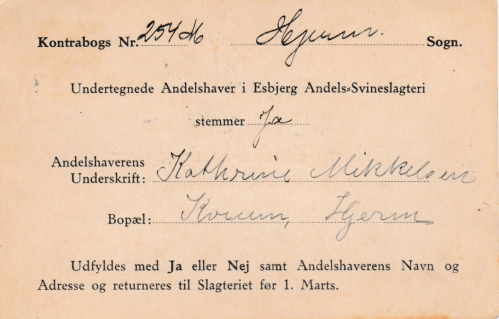 Kontrabogs Nr. 254 M Hjerm. Sogn.
Undertegnede Andelshaver i Esbjerg Andels-Svineslagteri
stemmer Ja
Andelshaverens
Underskrift: Kathrine Mikkelsen
Bopæl: Hjerm
Udfyldes med Ja eller Nej samt Andelshaverens Navn og
Adresse og returneres til Slagteriet før 1. Marts.